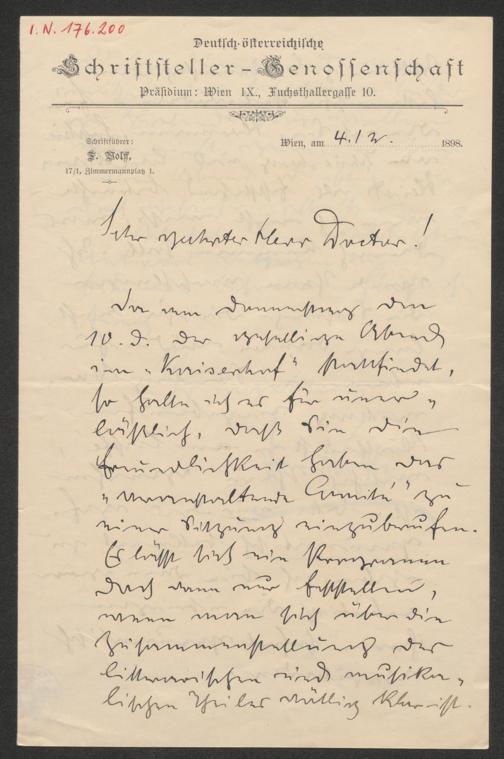 I. N. 176.200
Deutsch-österreichische
Schriftsteller-Genossenschaft
Präsidium: Wien IX., Fuchsthallergasse 10.
Schriftführer:
F. Wolff,
17/1, Zimmermannplatz 1.
Wien, am 4./2. 1898.
Sehr geehrter Herr Doctor!
Da am Donnerstag den
10. d. der gesellige Abend
im „Kaiserhof" stattfindet,
so halte ich es für uner„
läßlich, daß Sie die
Freundlichkeit haben das
„veranstaltende Comité" zu
einer Sitzung einzuberufen.
Es läßt sich ein Programm
doch dann nur feststellen,
wenn man sich über die
Zusammenstellung des
litterarischen und musika„
lischen Theiles völlig klar ist.